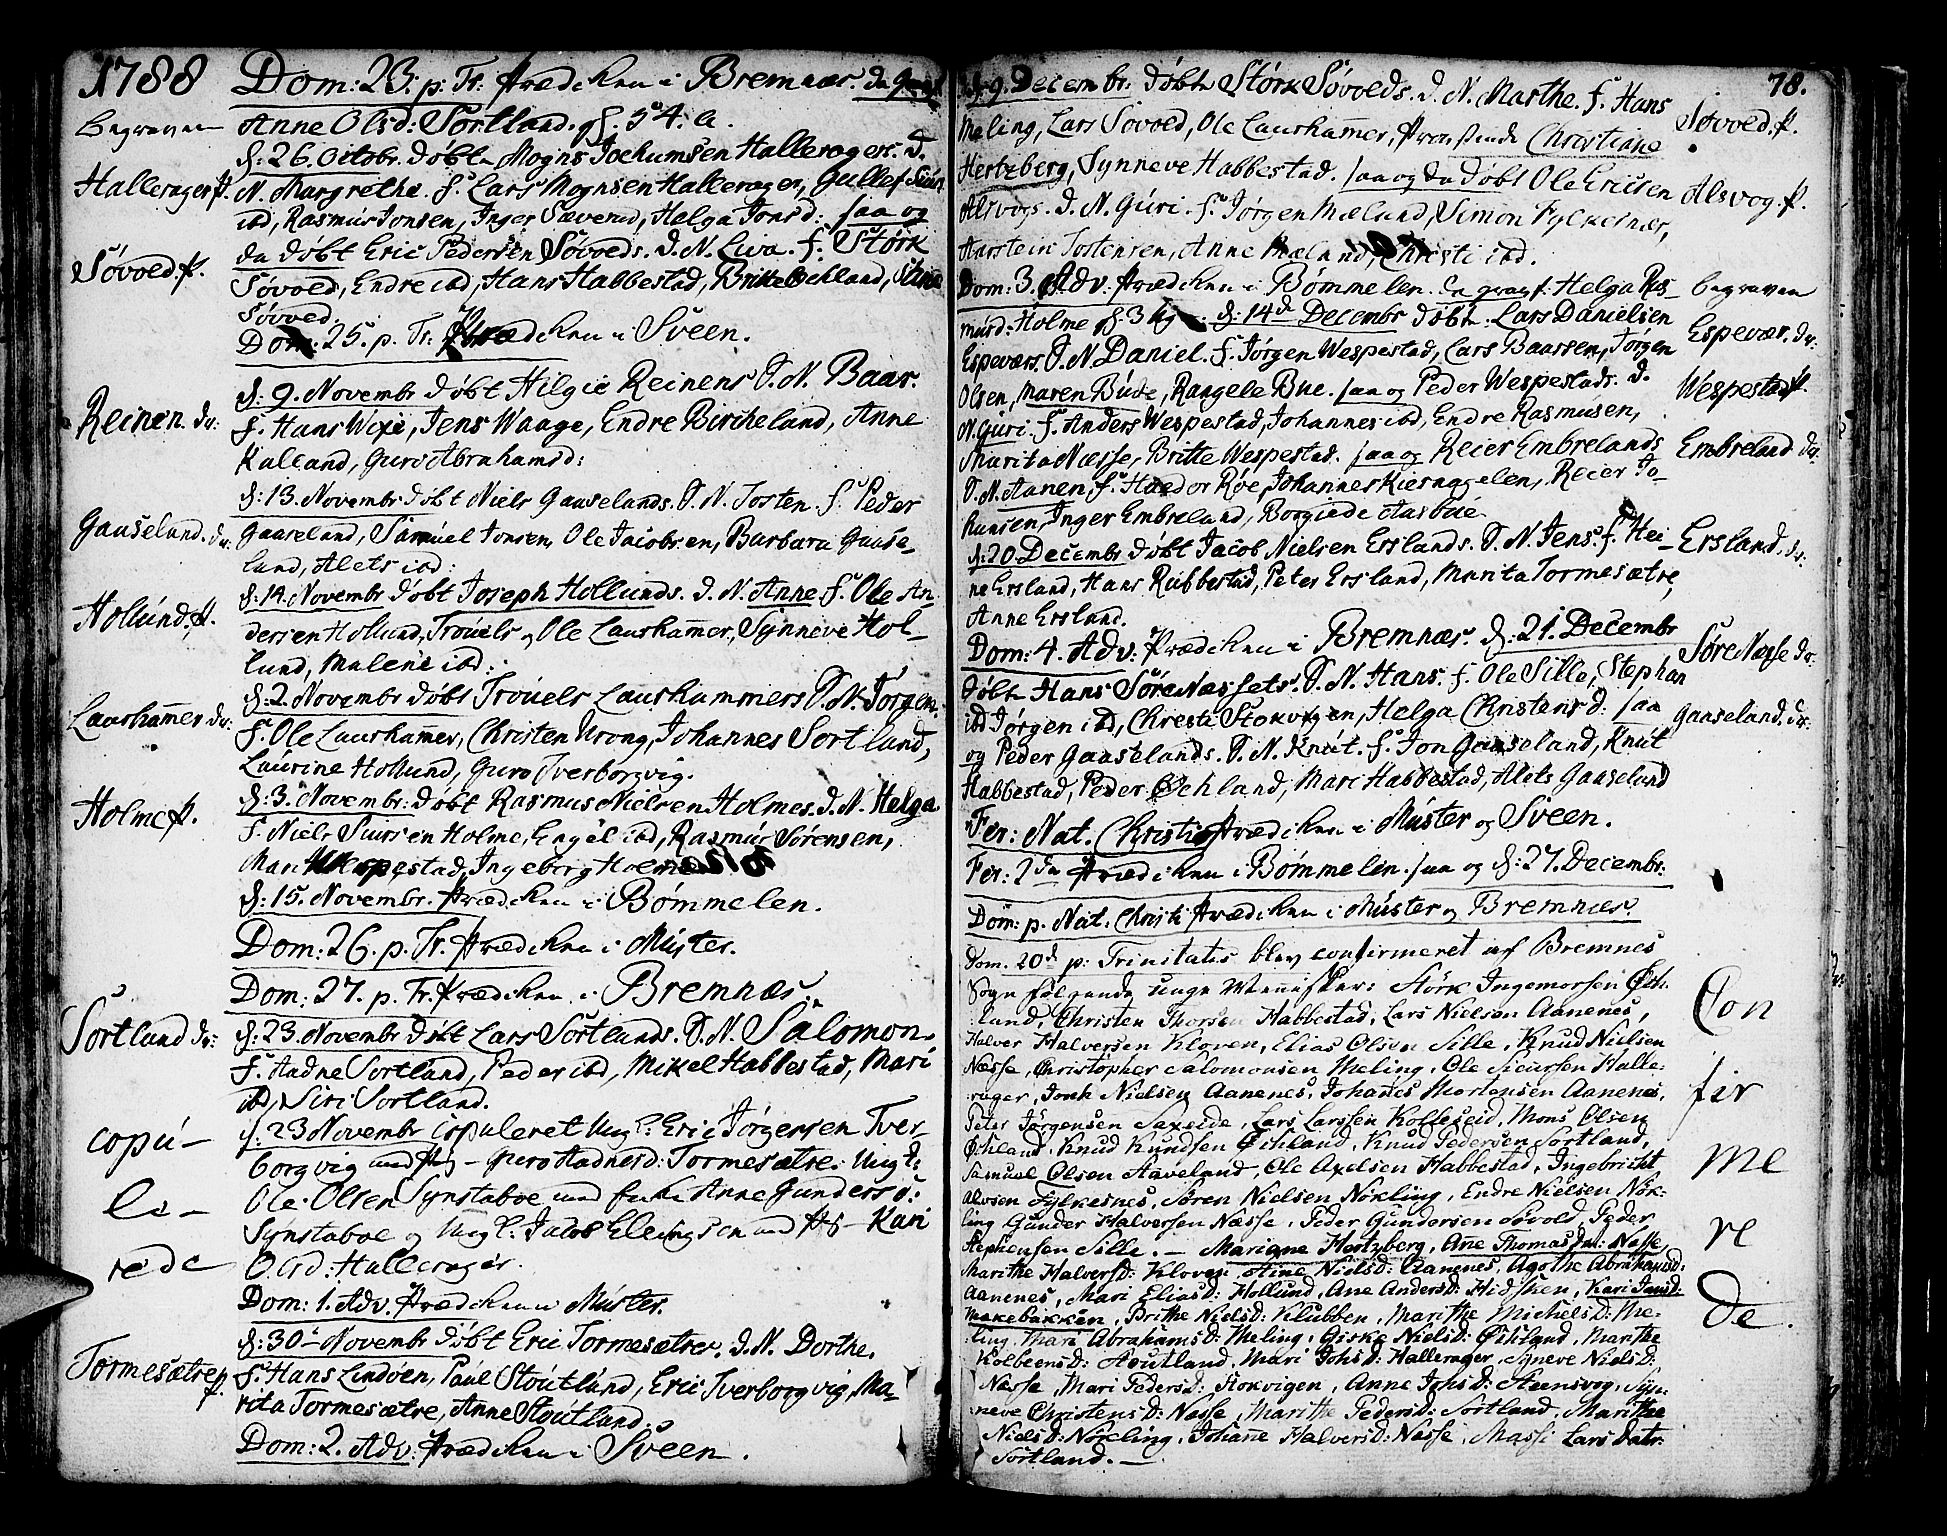 1788 Dom: 23. p. Tr. Prædiken i Bremnæs. da
begraven Anne Olsd: Sortland. 54. a.
d: 26. Octobr. døbt Mogns Jochumsen Halleragers. d.
Hallerager p. N. Margrethe. f. Lars Mognsen Hallerager, Gullef Siur
ibd, Rasmus Jonsen, Inger Sæverud, Helga Jonsd: saa og
da døbt Eric Pedersen Søvoeds. d. N. Liva. f. Størk
Søvoed. p. Søvoed, Endre ibd, Hans Habbestad, Britte Øchland,
Søvoed.
Dom: 25. p. Tr. Prædiken i Sveen.
d: 9. Novembr døbt Hilgie Reinens S. N. Baar.
Reinen. dr: f. Hans Wixe, Jens Waage, Endre Bircheland, Anne
Kalland, Guro Abrahamsd:
d: 13. Novembr døbt Niels Gaaselands. S. N. Josten. f. Peder
Gaaseland. dr: Gaaseland, Samuel Jonsen, Ole Jacobsen, Barbara Gaase-
land, Alets ibd:
d: 14. Novembr døbt Joseph Hollunds. d. N. Anne. f. Ole An-
Hollund. p. dersen Hollund, Trouels og Ole Laurhamer, Synneve Hol-
lund, Malene ibd:
d: 2. Novembr døbt Trouels Laurhammers S. N. Jørgen.
Laurhamer dr: f. Ole Laurhamer, Christen Urong, Johannes Sortland,
Laurine Hollund, Guro Tverborgvig.
d: 3. Novembr. døbt Rasmus Nielsen Holmes. d. N. Helga
Holme p. f. Niels Siursen Holme, Engel ibd, Rasmus Sørensen,
Mari Wespestad, Ingeborg Holme
d: 15. Novembr. Prædiken i Bømmelen.
Dom: 26. p. Tr. Prædiken i Muster.
Dom: 27. p. Tr. Prædiken i Bremnæs.
Sortland dr: d: 23. Novembr døbt Lars Sortlands. S. N. Salomon.
f. Aadne Sortland, Peder ibd, Mikel Habbestad, Mari
ibd, Siri Sortland.
copu- d: 23 Novembr copuleret Ungk: Eric Jørgensen Tver-
borgvig med Pig- Guro Aadnesd: Tormesætre. Ungk:
le- Ole Olsen Synstaboe med Enke Anne Gundersd:
Synstaboe og Ungk: Jacob Ellingsen med Pig- Kari
rede Olsd: Hallerager.
Dom: 1. Adv. Prædiken i Muster.
d: 30 Novembr døbt Eric Tormesætres. d. N. Dorthe.
Tormesætre p. f. Hans Lindøen, Paul Stoutland, Eric Tverborgvig, Ma-
rita Tormesætre, Anne Stoutland.
Dom: 2. Adv. Prædiken i Sveen.
78.
d: 9. Decembr. døbt Størk Søvoeds. d. N. Marthe. f. Hans
Meling, Lars Søvoed, Ole Laurhamer, Christiane Søvoed. p.
Hertzberg, Synneve Habbestad. saa og da døbt Ole Ericsen
Alsvogs. d. N. Guri. f. Jørgen Mæland, Simon Fylkesnes, Alsvog. p.
Aarstein Jostensen, Anne Mæland, Christi ibd.
Dom: 3. Adv. Prædiken i Bømmelen. begravt Helga Ras- begraven
musd: Holme d: 14d Decembr døbt. Lars Danielsen
Espeværs. S. N. Daniel. f. Jørgen Wespestad, Lars Baarsen, Jørgen Espevær. dr:
Olsen, Maren Bude, Rangele Bue. saa og Peder Wespestads. d. Wespestad p.
N. Guri. f. Anders Wespestad, Johannes ibd, Endre Rasmusen,
Marita Næsse, Britte Wespestad. saa og Reier Embrelands Embreland dr:
S. N. Aanen, f. Halvdor Røe, Johannes Kiernagelen, Reier Jo-
hansen, Inger Embreland, Borgilde Aasbue.
d: 20 Decembr døbt Jacob Nielsen Erslands. S. N. Jens. f. Hei- Ersland. dr:
ne Ersland, Hans Rubbestad, Peter Ersland, Marita Tormesætre,
Anne Ersland.
Dom: 4. Adv: Prædiken i Bremnæs. d: 21. Decembr Søre Næsse dr:
døbt Hans Søre Næssets. S. N. Hans. f. Ole Sille, Stephan
ibd Jorgen ibd, Christi Stokvigen, Helga Christensd: saa Gaaseland. dr:
og Peder Gaaselands. S. N. Knut. f. Jon Gaaseland, Knut
Habbestad, Peder Øchland, Mari Habbestad, Alets Gaaseland
Fer: Nat. Christi Prædiken i Muster og Sveen.
Fer: 2da Prædiken i Bømmelen. saa og d: 27. Decembr.
Dom: p. Nat. Christi Prædiken i Muster og Bremnæs.
Dom. 20d p: Trinitatis blev confirmeret af Bremnes
Sogn følgende unge Mennisker: Størk Ingemorsen Øch-
land, Christen Thorsen Habbestad, Lars Nielsen Aanenes, Con
Halver Halversen Kloven, Elias Olsen Sille, Knud Nielsen
Næsse, Christopher Salomonsen Meling, Ole Siursen Halle-
rager, Jonk Nielsen Aanenes, Johanes Mortensen Aanenes, fir
Peter Jørgensen Saxeide, Lars Larsen Kolleseid, Mons Olsen
Øchland, Knud Knudsen Øchland, Knud Pedersen Sortland,
Samuel Olsen Aaveland, Ole Axelsen Habbestad, Ingebricht me
Alvsen Fylkesnes, Søren Nielsen Nøkling, Endre Nielsen Nøk-
ling Gunder Halversen Næsse, Peder Gundersen Søvold, Peder re
Stephensen Sille. - Mariane Hertzberg, Ane Thomasdat: Næsse,
Marithe Halversd: Kloven, Aine Nielsd: Aanenes, Agothe Abrahamsd:
Aanenes, Mari Eliasd: Hollund, Ane Andersd: Hidsken, Kari Jansd: de.
Makebakken, Brithe Nielsd: Klubben, Marithe Michelsd: Me-
ling, Mari Abrahamsd: Meling, Giske Nielsd: Øchland, Marithe
Kolbeensd: Stoutland, Mari Johsd: Hallerager, Syneve Nielsd:
Næsse, Mari Pedersd: Stokvigen, Anne Johsd: Steensvog, Syn-
neve Christensd: Næsse, Marithe Pedersd: Sortland, Marithe
Nielsd: Nøkling, Johane Halversd: Næsse, Massi Larsdatr:
Sortland.